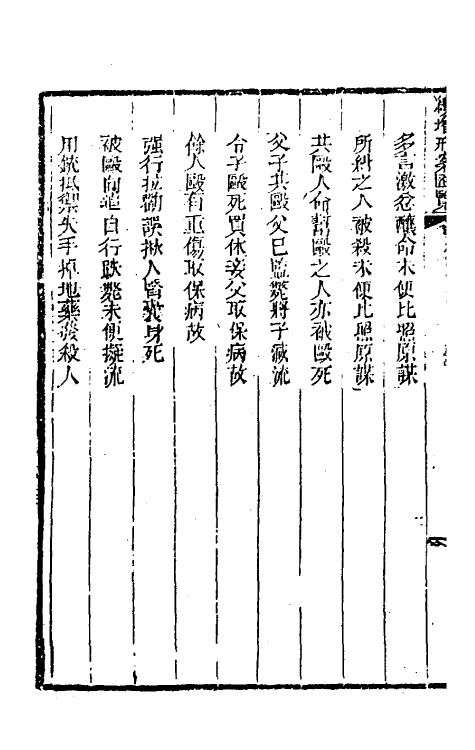 續增刑案匯覽
多言激忿釀命未便比照原謀
所糾之人被殺未便比照原謀
共毆人命幫毆之人亦被毆死
父子共毆父已監斃將子減流
令子毆死買休妻父取保病故
餘人毆有重傷取保病故
强行拉勸誤揪人腎囊身死
被毆向追自行跌斃未便擬流
用銃抵禦失手掉地藥發殺人